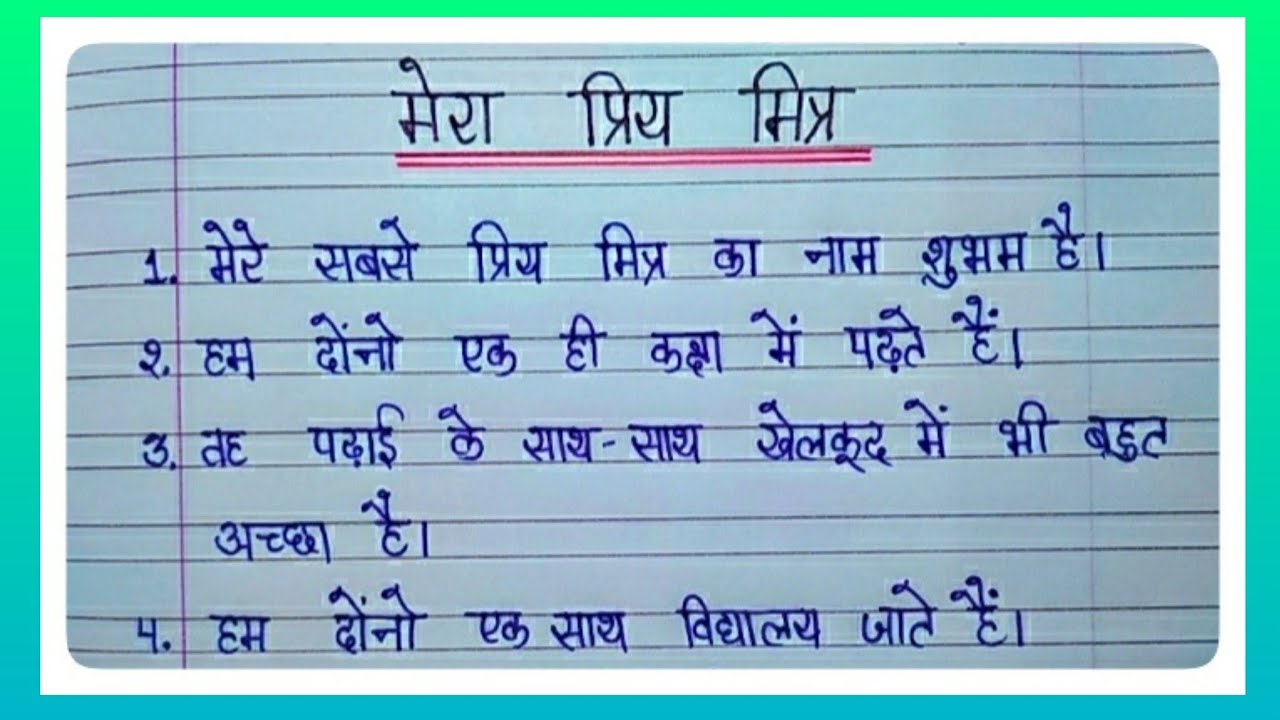 मेरा प्रिय मित्र
1. मेरे सबसे प्रिय मित्र का नाम शुभम है।
२. हम दोंनो एक ही कक्षा में पढ़ते हैं।
3. वह पढ़ाई के साथ-साथ खेलकूद में भी बहुत
अच्छा है।
4. हम दोंनो एक साथ विद्यालय जाते हैं।